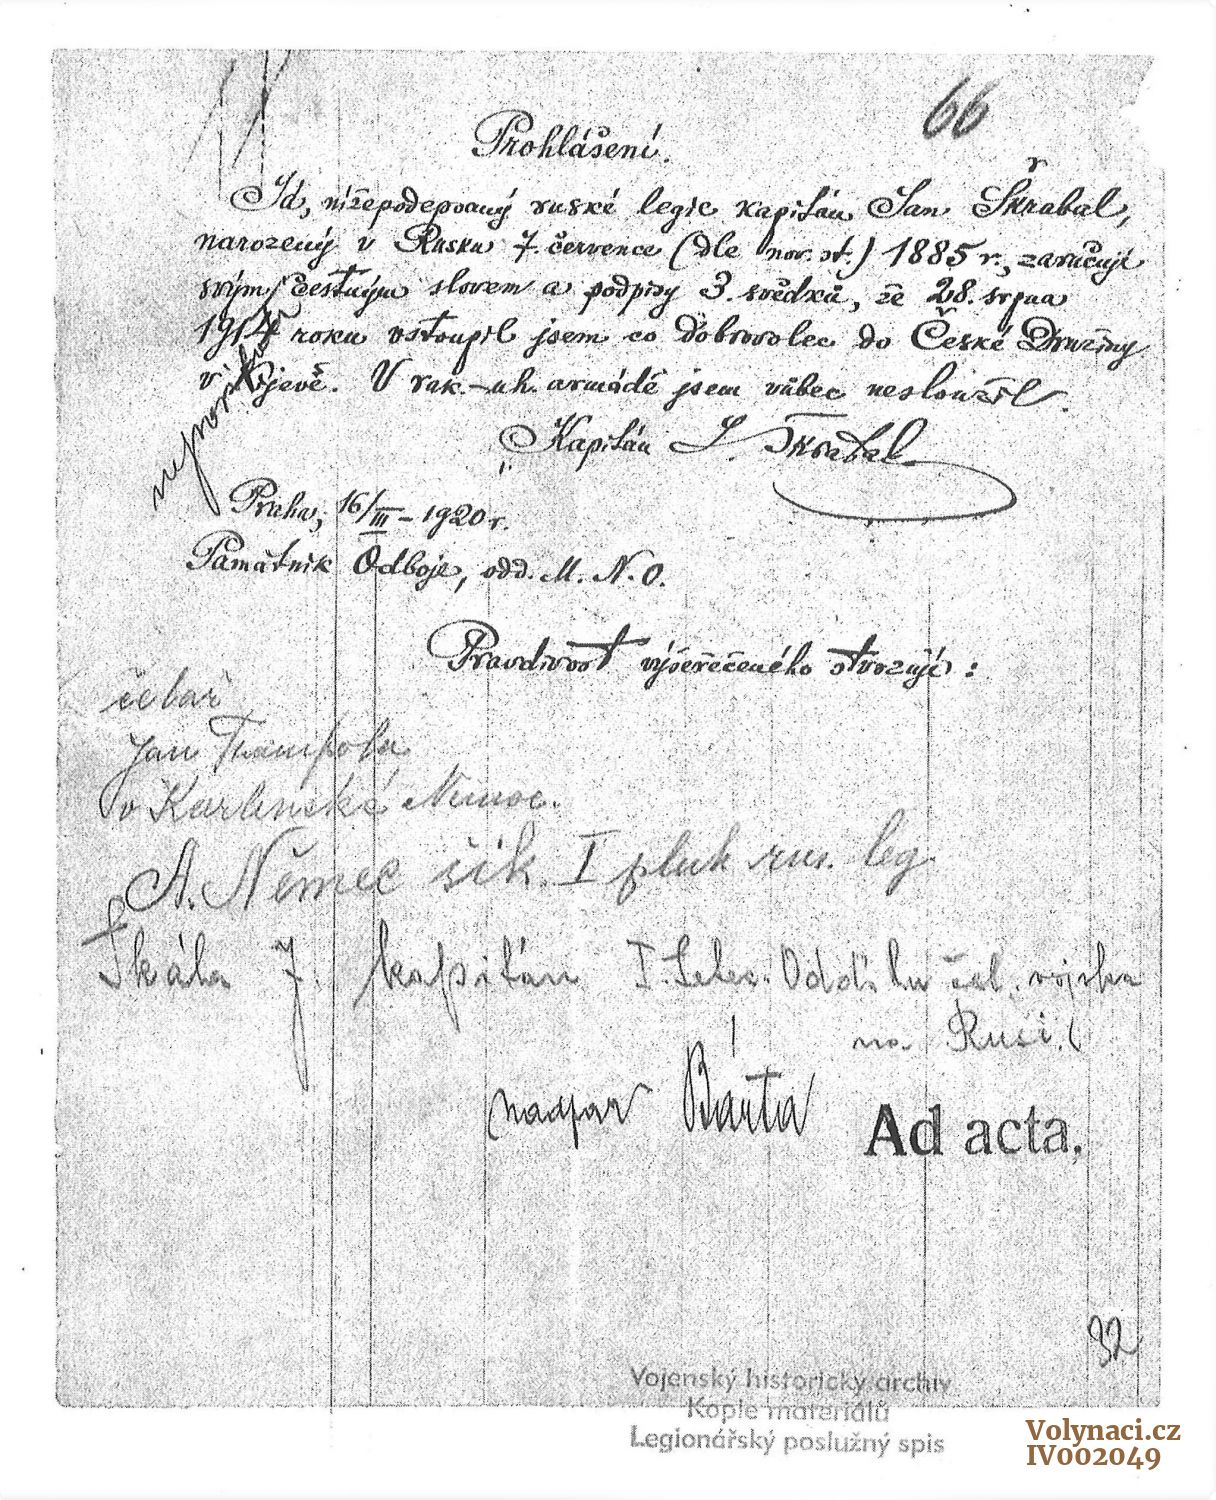 66
Prohlášení.
Já, nížepodepsaný ruské legie kapitán Jan Škrabal,
narozený v Rusku 7. července (dle nov. st.) 1885 r., zaručuji
svým čestným slovem a podpisy 3. svědků, že 28. srpna
1914 roku vstoupil jsem co dobrovolec do České Družiny
v Kijevě. V rak.-uh. armádě jsem vůbec nesloužil.
Kapitán J. Škrabal
Praha, 16/III – 1920 r.
Památník Odboje, odd. M. N. O.
Pravdivost výšeřečeného stvrzují:
četař
Jan Trampota
v Karlínské Nemoc.
A. Němec šik. I pluk rus. leg.
Skála J. kapitán I. Letec. Oddílu čsl. vojska
na Rusi.
Bárta
Ad acta.
32
Vojenský historický archiv
Kopie materiálů
Legionářský poslužný spis
Volynaci.cz
IV002049